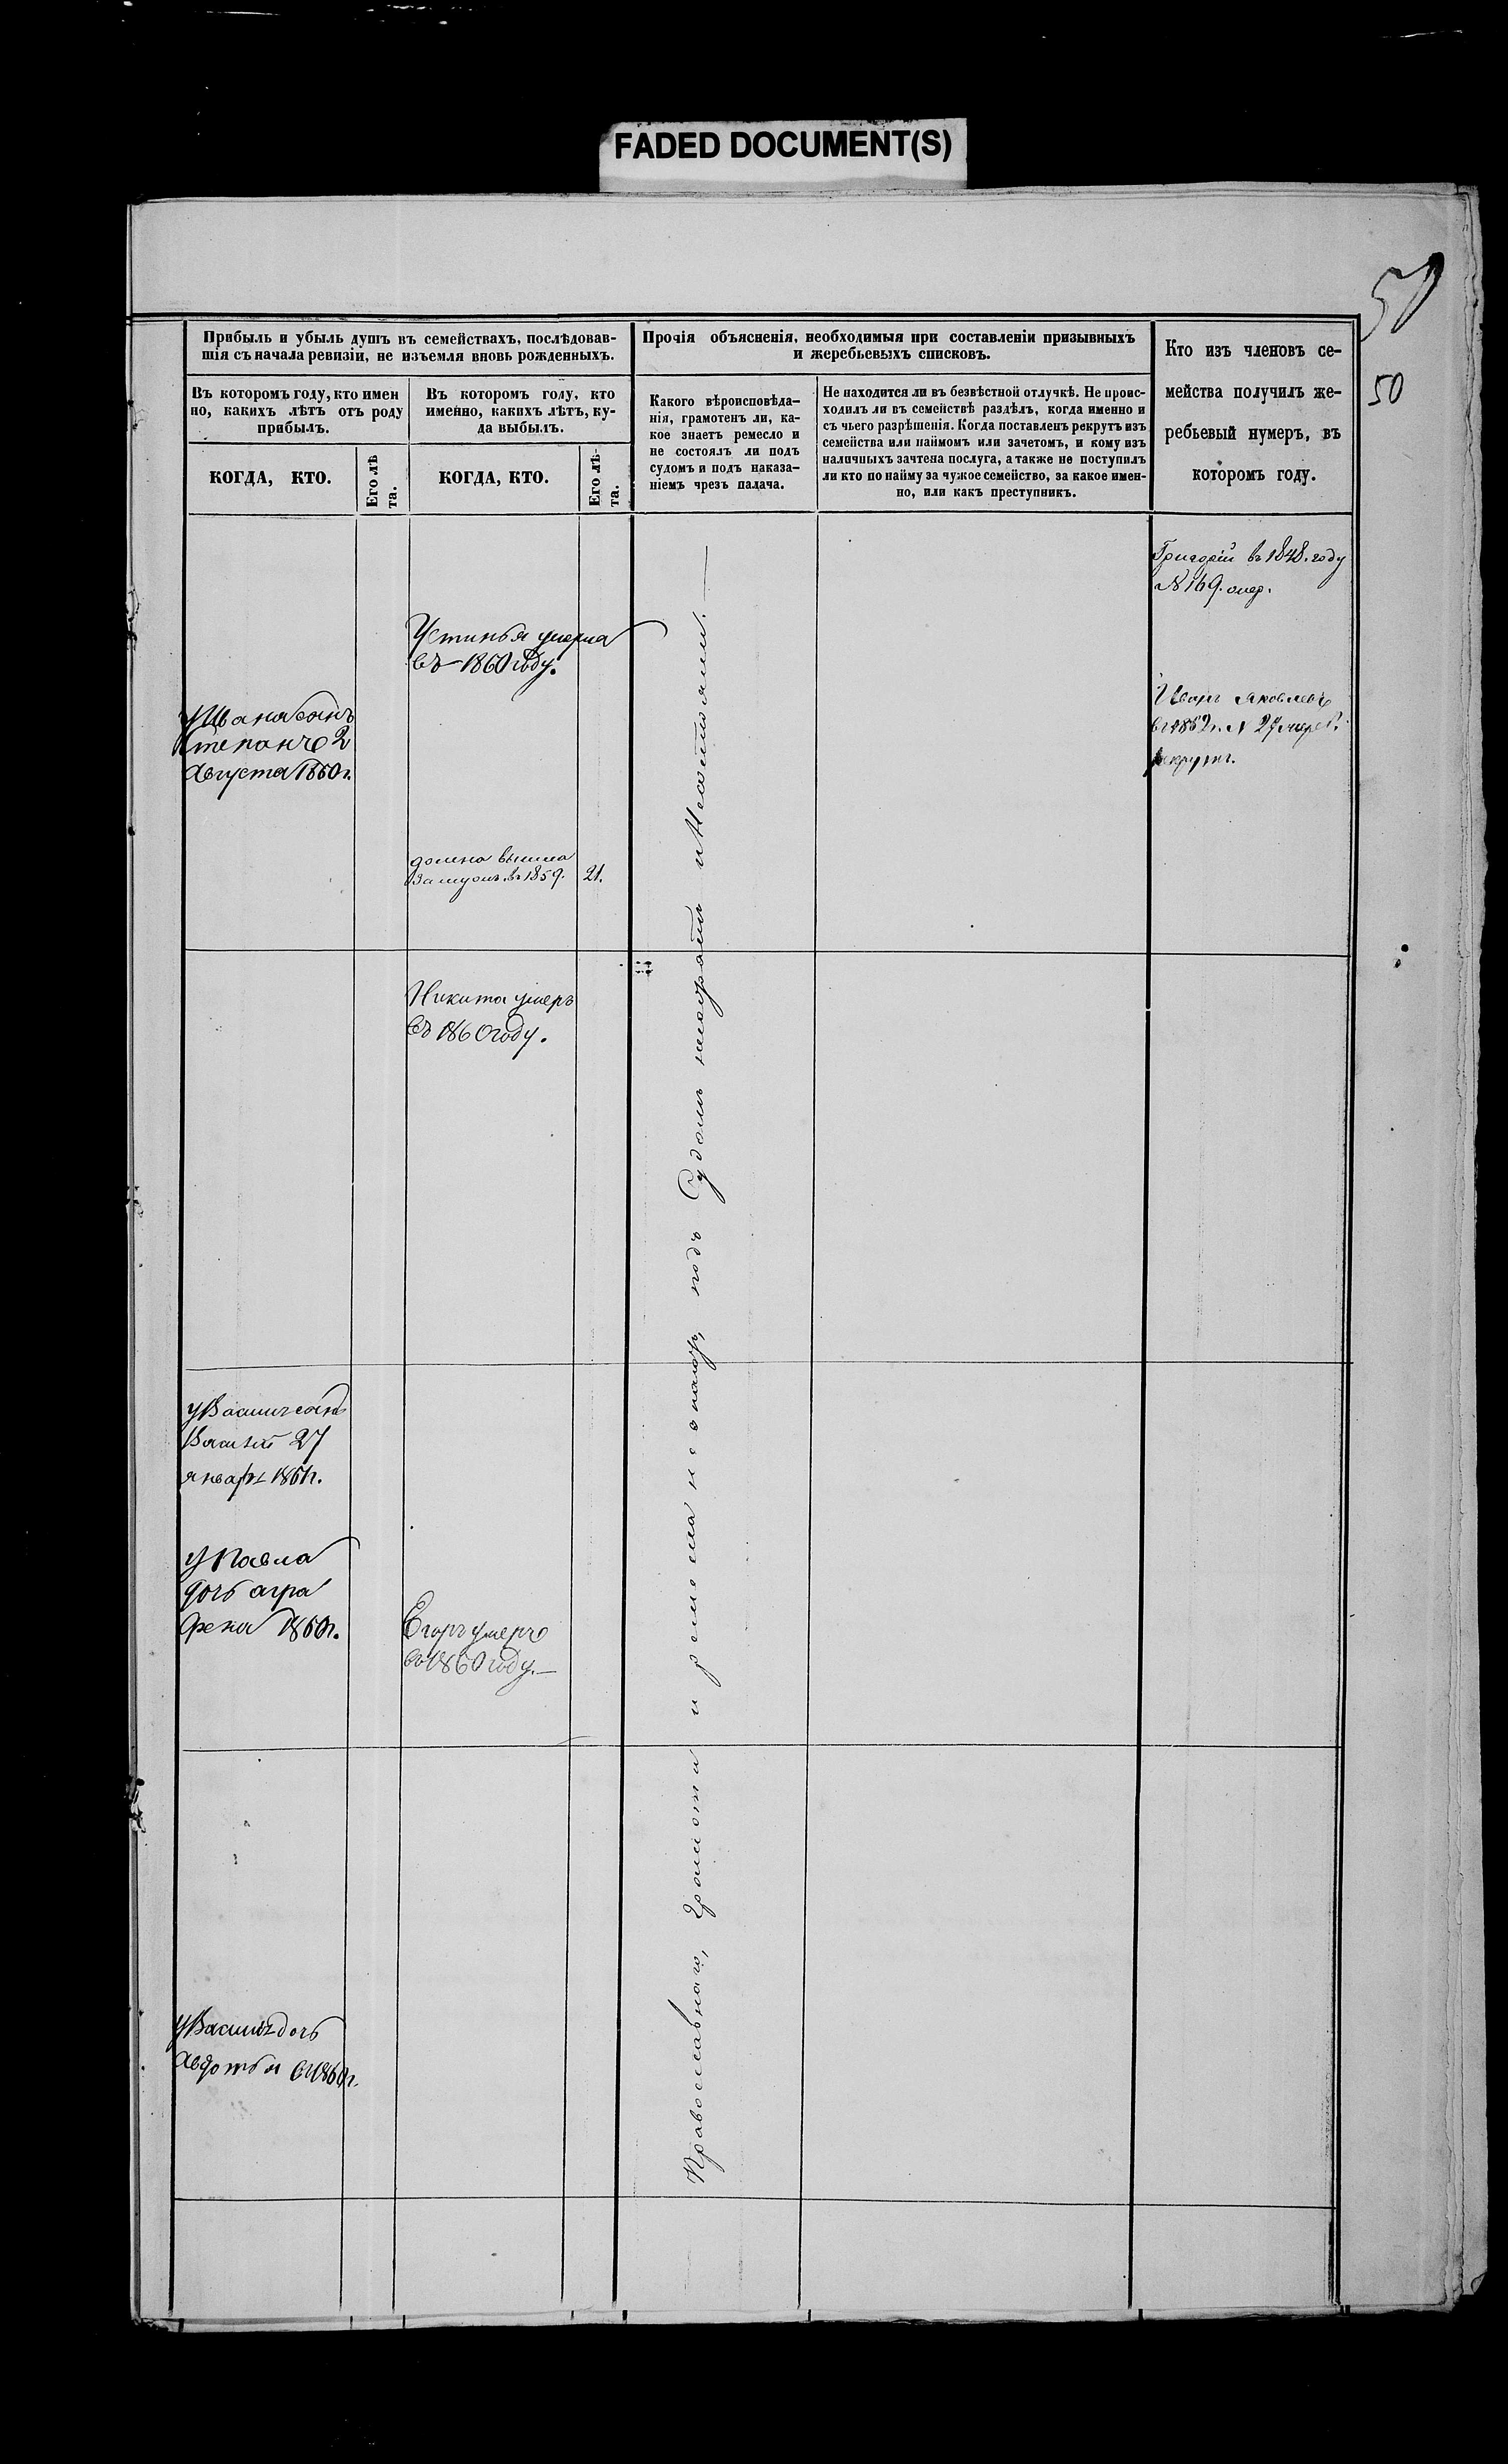 FADED DOCUMENT(S)
50
50
Прибыль и убыль душъ въ семействахъ, послѣдовав-
шія съ начала ревизіи, не изъемля вновь рожденныхъ.
Прочія объясненія, необходимыя при составленіи призывныхъ
и жеребьевыхъ списковъ.
Кто изъ членовъ се-
мейства получилъ же-
ребьевый нумеръ, въ
которомъ году.
Въ которомъ году, кто имен
но, какихъ лѣтъ отъ роду
прибылъ.
Въ которомъ году, кто
именно, какихъ лѣтъ, ку-
да выбылъ.
Какого вѣроисповѣда-
нія, грамотенъ ли, ка-
кое знаетъ ремесло и
не состоялъ ли подъ
судомъ и подъ наказа-
ніемъ чрезъ палача.
Не находится ли въ безвѣстной отлучкѣ. Не проис-
ходилъ ли въ семействѣ раздѣлъ, когда именно и
съ чьего разрѣшенія. Когда поставленъ рекрутъ изъ
семейства или наймомъ или зачетомъ, и кому изъ
наличныхъ зачтена послуга, а также не поступилъ
ли кто по найму за чужое семейство, за какое имен-
но, или какъ преступникъ.
КОГДА, КТО.
Его лѣ
та.
КОГДА, КТО.
Его лѣ-
та.
Григорій въ 1848. году
N 169.
Устинья умерла
въ 1860 году.
у Ивана сынъ
Степанъ 2
Августа 1860 г.
Иванъ Яковлевъ
N 27
рекрутъ.
вышла
замужъ въ 1859. 21.
Никита умеръ
въ 1860 году.
у Васильи сынъ
Василій 27
января 1861 г.
у Павла
дочь Агра
фена 1860 г.
Егоръ умеръ
въ 1860 году.
у Василья дочь
Авдотья въ 1860 г.
Православнаго, грамоти и ремесла не знаютъ, подъ Судомъ и не состояли.